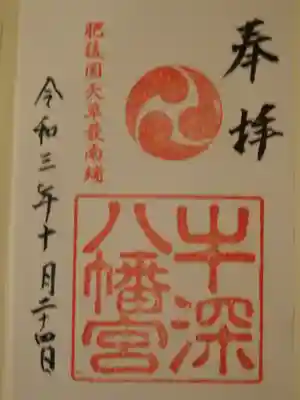 奉拝
肥後国天草最南端
牛深
八幡宮
令和三年十月二十四日